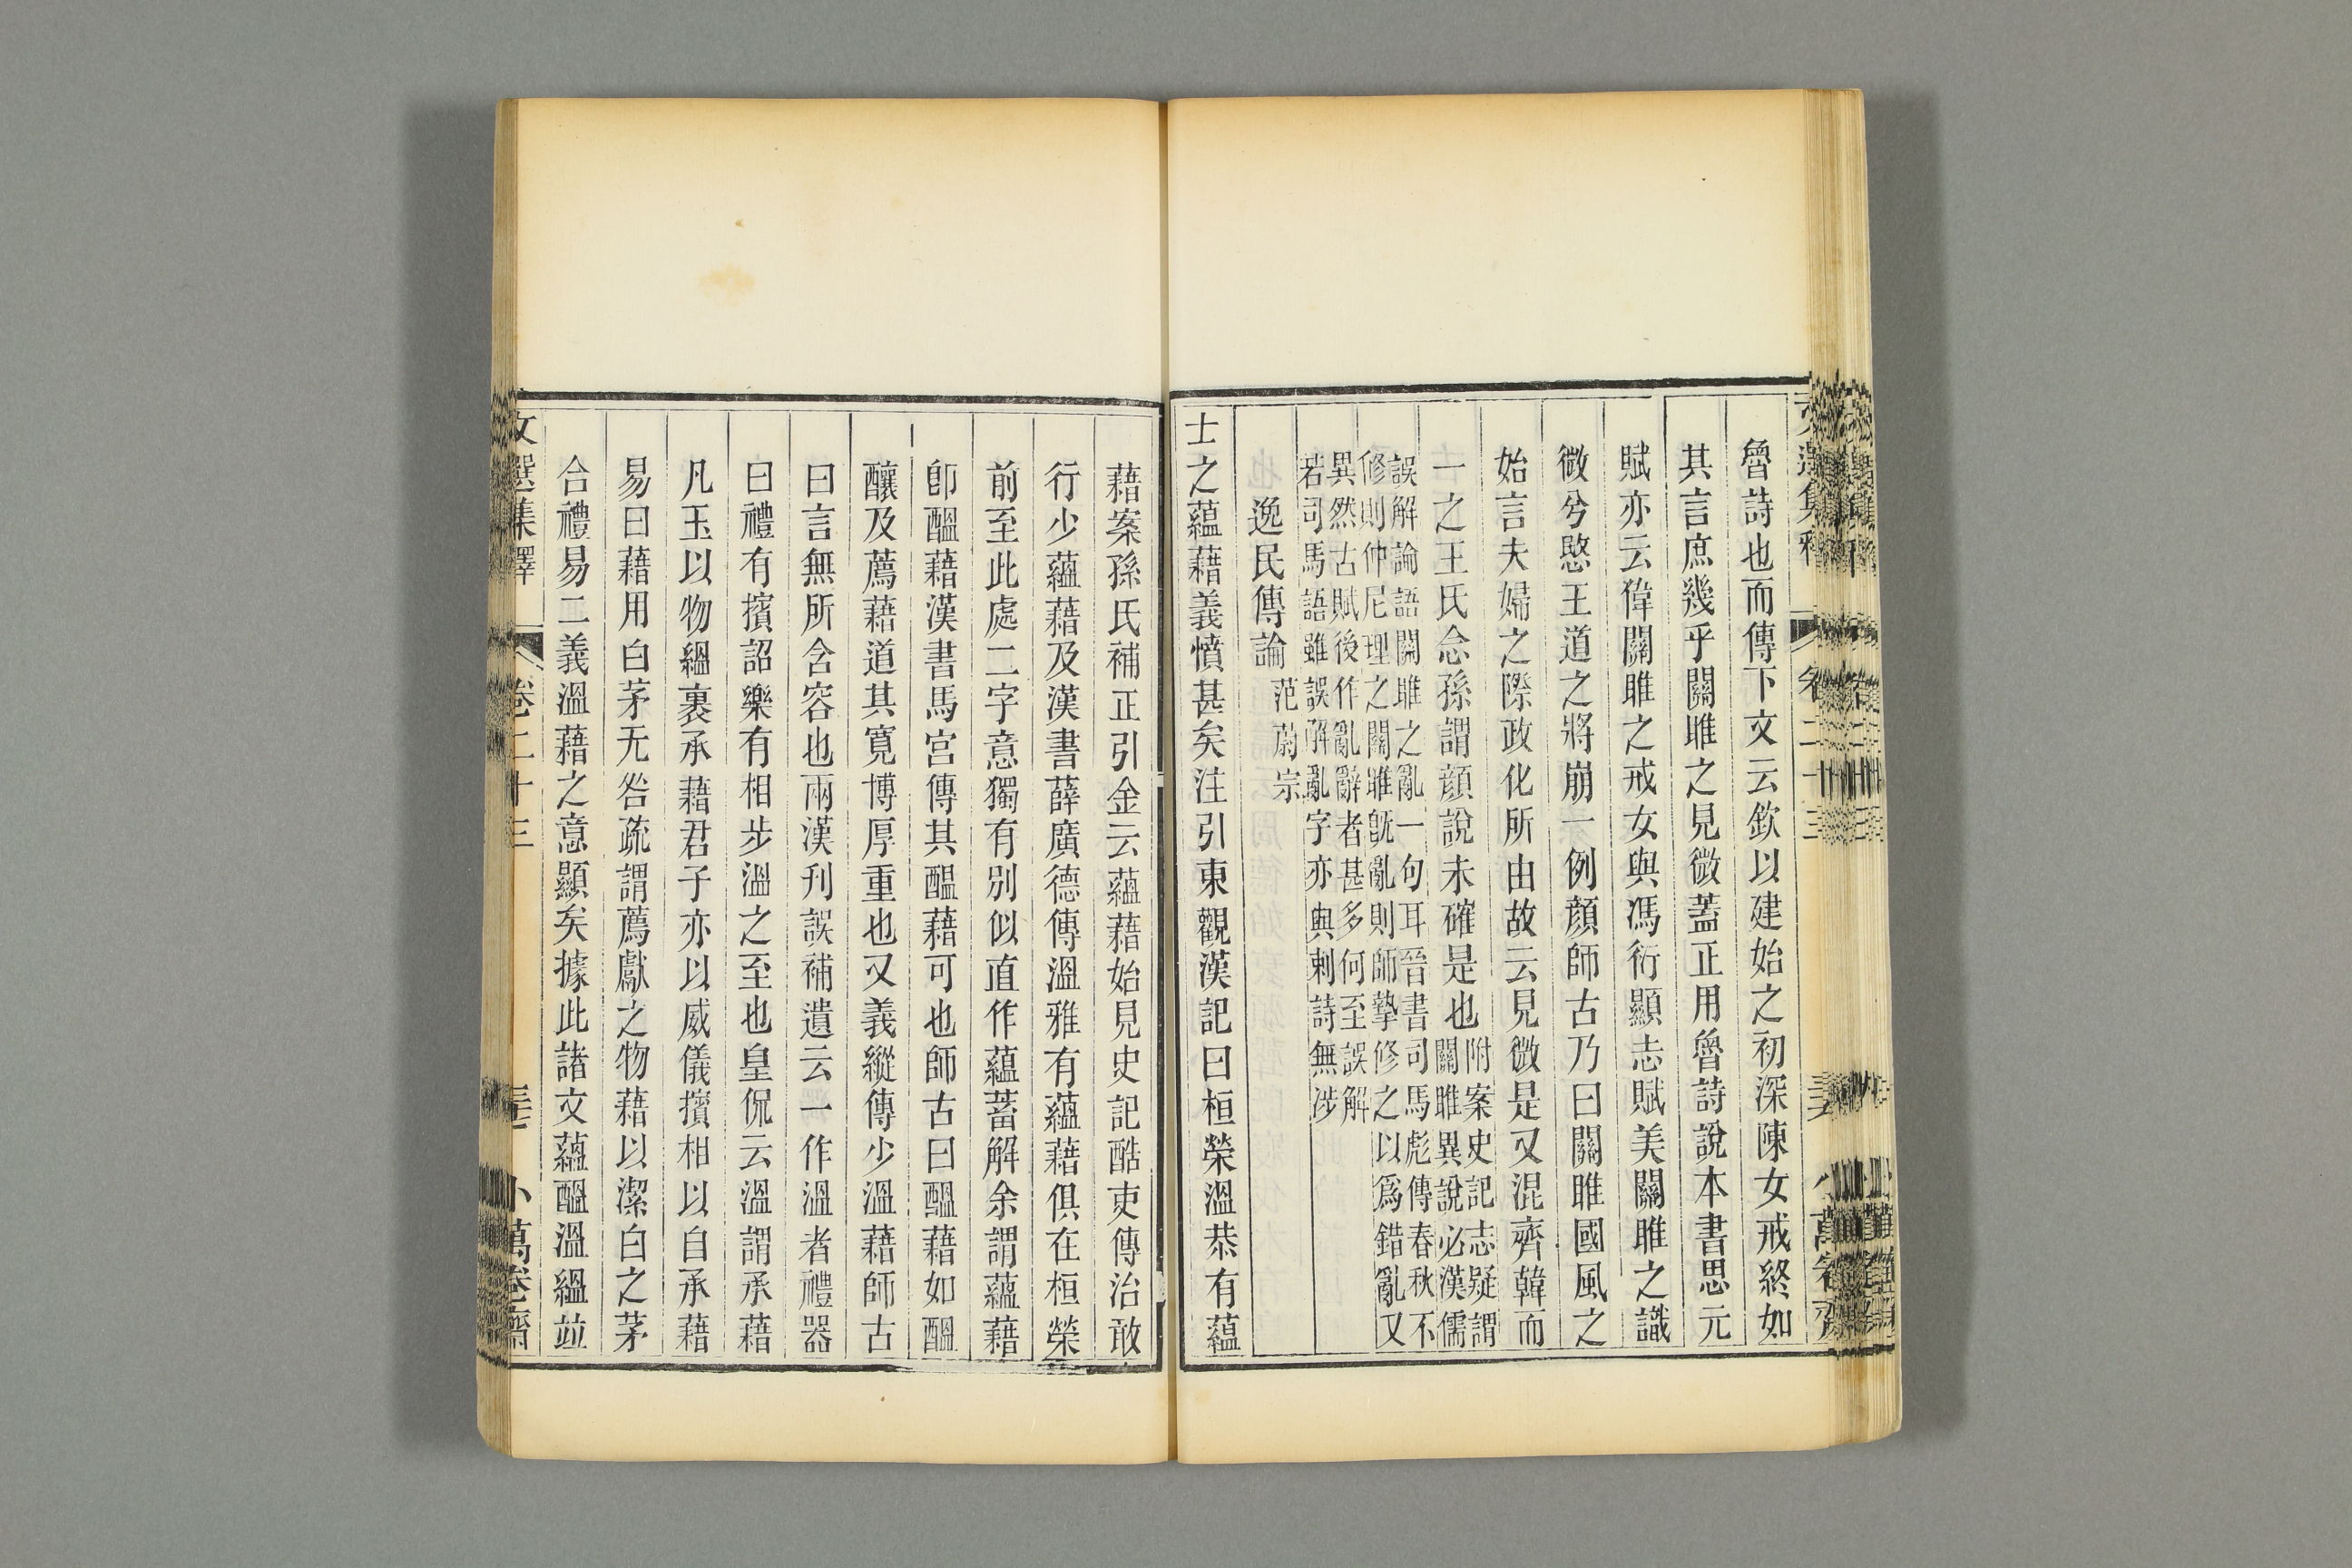 魯詩也而傳下文云欽以建始之初深陳女戒終如
其言庶幾乎關雎之見微蓋正用魯詩說本書思元
賦亦云偉關雎之戒女與馮衍顯志賦美關雎之識
微兮愍王道之將崩一例顏師古乃曰關雎國風之
始言夫婦之際政化所由故云見微是又混齊韓而
一之王氏念孫謂顏說未確是也
附案史記志疑謂
關雎異說必漢儒
誤解論語關雎之亂一句耳晉書司馬彪傳春秋不
修則仲尼理之關雎旣亂則師摯修之以爲錯亂又
異然古賦後作亂辭者甚多何至誤解
若司馬語雖誤解亂字亦與刺詩無涉
逸民傳論 范蔚宗
士之蘊藉義憤甚矣注引東觀漢記曰桓榮溫恭有蘊
藉案孫氏補正引金云蘊藉始見史記酷吏傳治敢
行少蘊藉及漢書薛廣德傳溫雅有蘊藉俱在桓榮
前至此處二字意獨有別似直作蘊蓄解余謂蘊藉
卽醞藉漢書馬宮傳其醞藉可也師古曰醞藉如醞
釀及薦藉道其寬博厚重也又義縱傳少溫藉師古
曰言無所含容也兩漢刋誤補遺云一作溫者禮器
曰禮有擯詔樂有相步溫之至也皇侃云溫謂承藉
凡玉以物縕裹承藉君子亦以威儀擯相以自承藉
易曰藉用白茅无咎疏謂薦獻之物藉以潔白之茅
合禮易二義溫藉之意顯矣據此諸文蘊醞溫縕竝
文選集釋 卷二十三 小萬卷齋